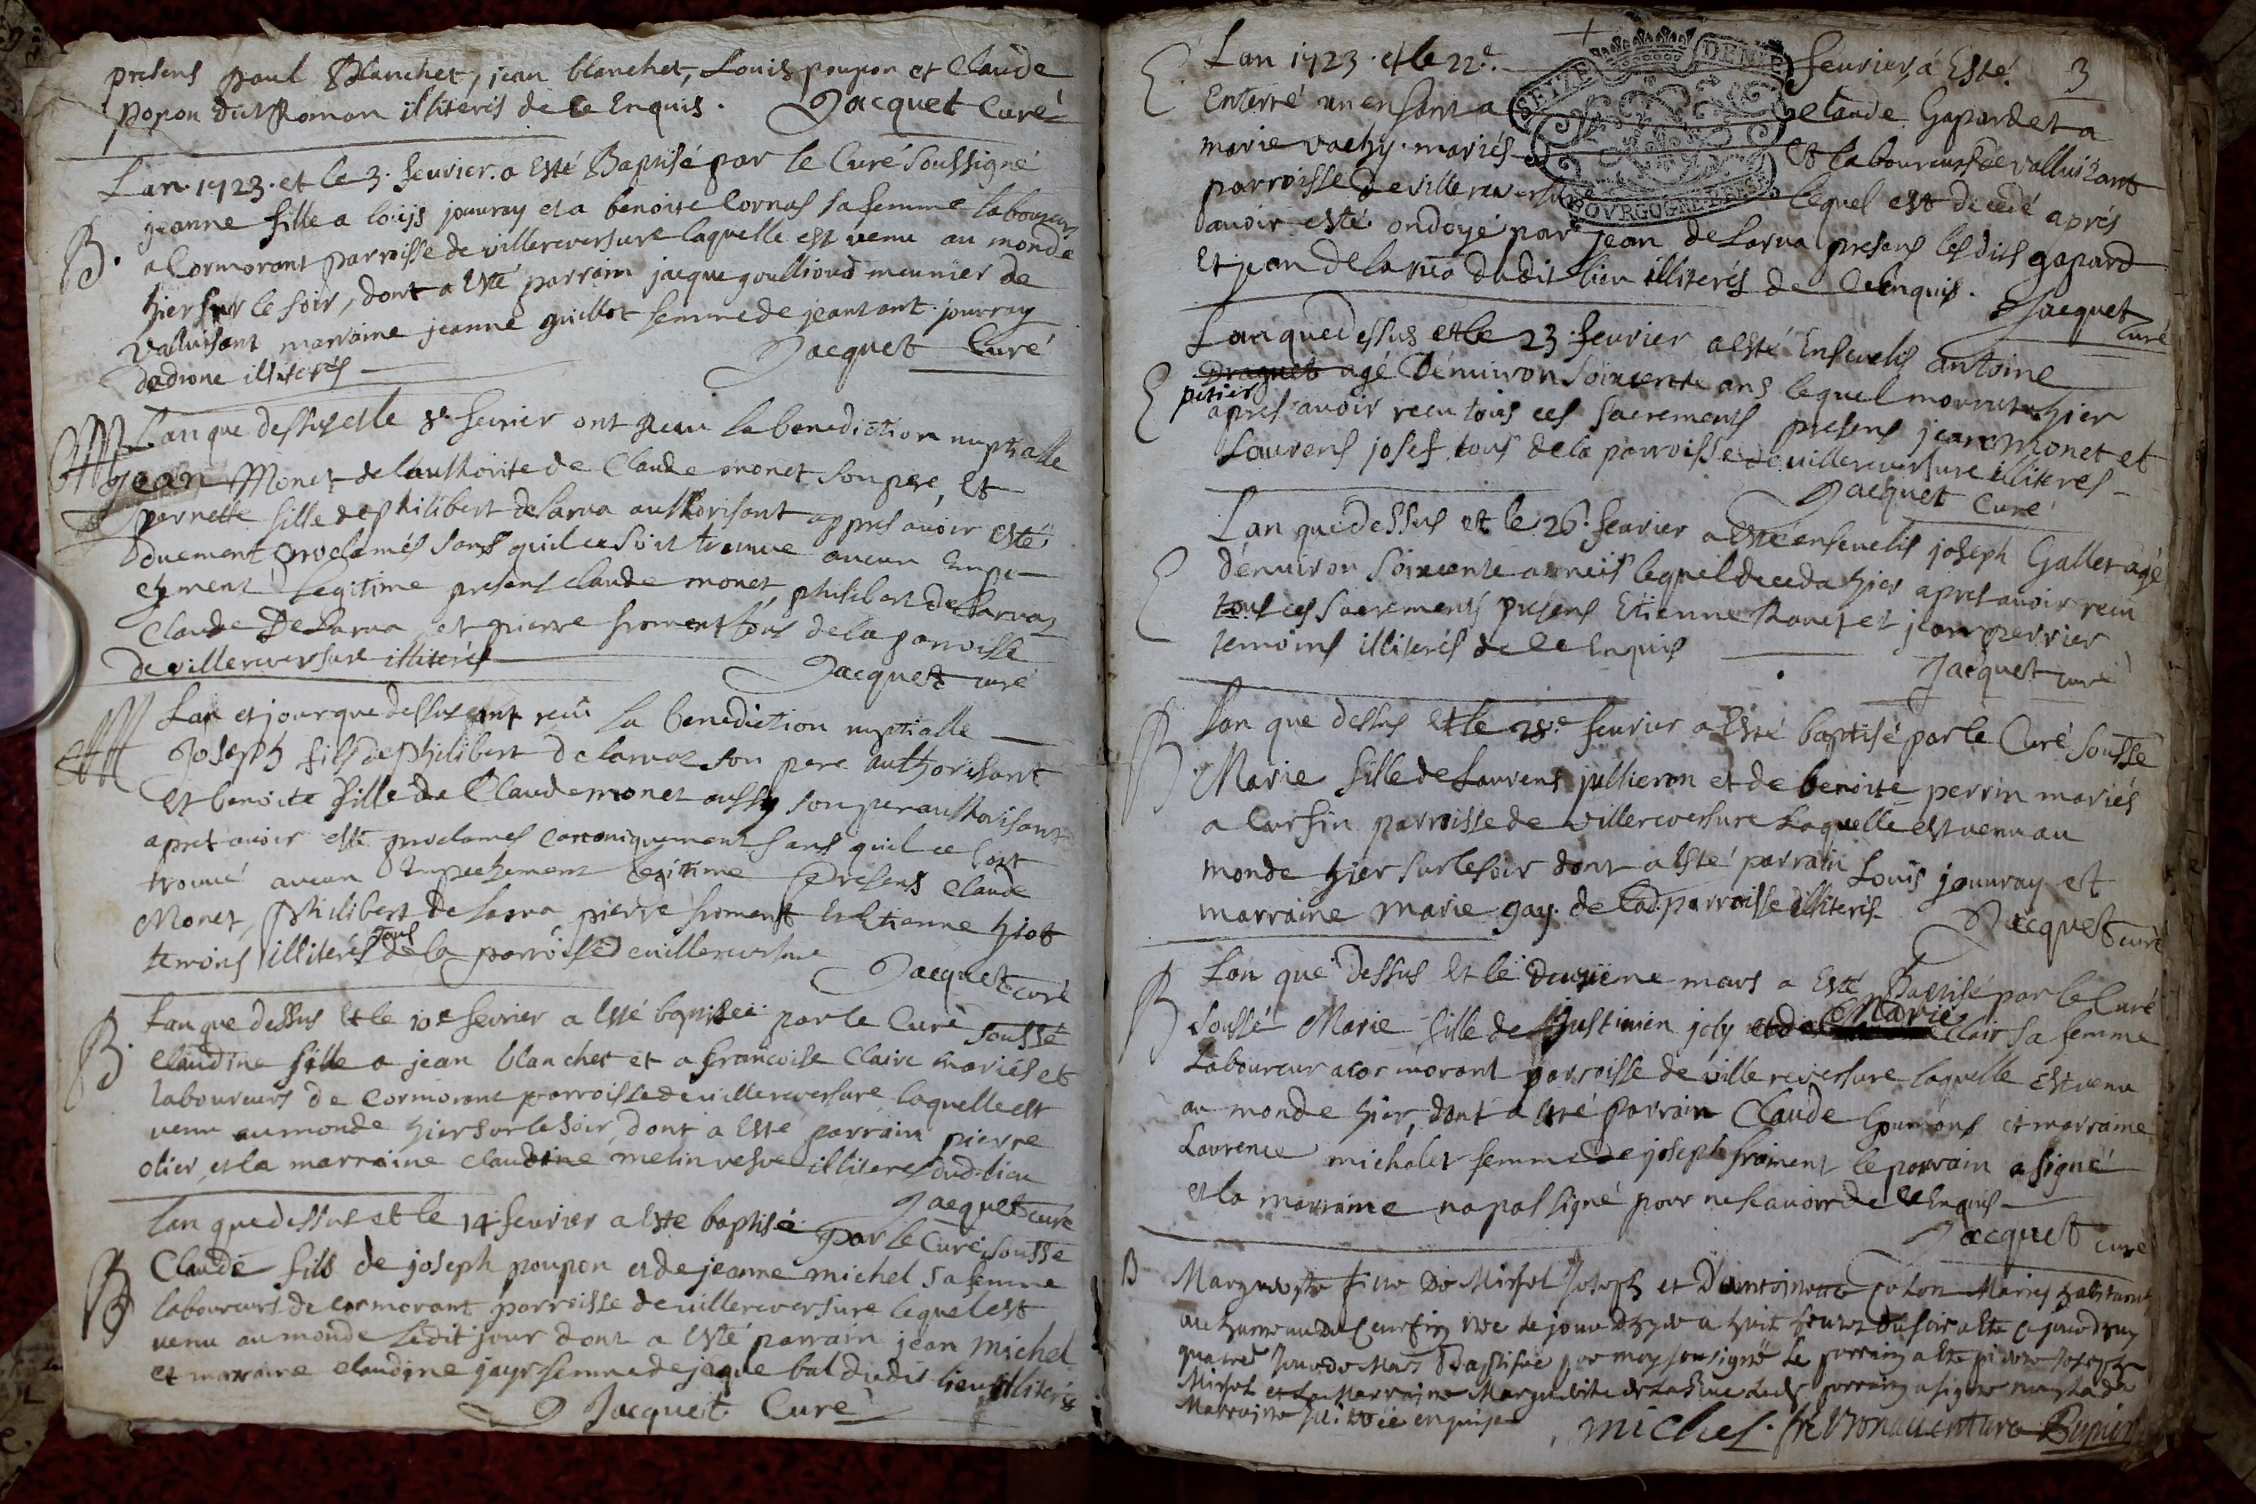 presens paul Blanchet, jean blanchet, Louis poupon et Claude
popon dit Roman illiteris de ce Enquis. Jacquet Curé
Lan 1723. et le 3. feurier. a Esté Baptisé par le Curé Soussigné
B. jeanne fille a loüjs jouuray et a benoite Cornas sa femme laboureurs
a Cormorant parroisse de villereuersure laquelle est venu au monde
hier sur le soir, dont a Esté parrain jacque goullioud meunier de
valluisant marraine jeanne guillot femme de jean ant. jourray
illiterés Jacquet Curé
M Lan que dessus et le 8e feurier ont Receu la benediction nuptialle
jean Monet de lauthorite de Claude monet son pere, Et
pernette fille de philibert delarua authorisant appres auoir esté
duement proclamés sans quil ce soit trouuue aucun Empe-
chement legitime presens claude monet, philibert Delarua
Claude DeLarua, et pierre froment tous de la parroisse
de villereuersure illiterés Jacquet curé
M Lan et jour que dessus ont recû la benediction nuptialle
Joseph fils de philibert delarua son pere authorisant
Et benoite fille de Claude monet aussy son pere authorisant
apres auoir esté proclames canoniquement sans quil ce soit
trouué aucun Empechement legitime Presens Claude
Monet, philibert de larua pierre froment Et Etienne hiot
temoins illiterés tous de la parroisse de villereuersure
Jacquet curé
B. Lan que dessus Et le 10e feurier a Esté baptiseé par le Curé soussé
claudine fille a jean blanchet et a francoise Claire mariés et
laboureurs de Cormorant parroisse de villereuersure laquelle est
venu au monde hier sur le soir, dont a Esté parrain pierre
olier, et la marraine claudine melin vefve illiteres dud. lieu
Jacquet curé
Lan que dessus et le 14 feurier a Esté baptisé par le Curé soussé
B Claude fils de joseph poupon et de jeanne michel sa femme
laboureurs de cormorant parroisse de villereuersure lequel est
venu au monde ledit jour dont a Esté parrain jean michel
et marraine claudine jayr femme de jaque bal dudit lieu illiterés
Jacquet Curé
3
SEIZE DENIE
BOVRGOGNE BRESSE
E Lan 1723. et le 22e. feurier, a Esté
Enterré un enfant a claude Gapard et a
marie vachy. mariés et laboureurs de valluisant
parroisse de villereuersure lequel est decedé aprés
dauoir esté ondoyé par jean deLarua presens lesdits gapard
Et jean delarua dudit lieu illiterés de ce Enquis.
Jacquet curé
Lan que dessus et le 23 feurier a esté Enseuelis antoine
E Draguet petier agé Dénuiron soixente ans lequel mourut hier
apres auoir recu tous ces sacrements presens jean monet et
Laurens josef tous de la parroisse de villereuersure illiteres
Jacquet Curé
Lan que dessus et le 26. feurier a esté enseuelis joseph Gallet agé
E dénuiron soixente années lequel deceda hier apres auoir recu
tous ces sacrements presens Etienne Ranet et jean perrier
temoins illiterés de ce Enquis
Jacquet curé
Lan que dessus Et le 28e feurier a Esté baptisé par le Curé soussé
B Marie fille de Laurens jullieron et de benoite perrin mariés
a Cursin parroisse de villereuersure Laquelle est venu au
monde hier sur le soir dont a Esté parrain Louis jouuray et
marraine marie gay. de lad. parroisse illiterés
Jacquet curé
Lan que dessus Et le deuxieme mars a Esté Baptisé par le Curé
B soussé Marie fille de justinien joly et de Marie Clair sa femme
Laboureur a cormorant parroisse de villereuersure laquelle est venu
au monde hier, dont a esté parrain Claude Goumons et marraine
Laurence michalet femme de joseph froment le parrain a signé
et la marraine na pas signé pour ne scauoir de ce Enquis
Jacquet curé
B Marguerite fille De Michel Joseph et Dantoinette Colon Mariés habitants
au hameau de Cursin née le jour dhyer a huit heures du soir a Esté ce jourdhuy
quatre jour de Mars Baptisée par moy sousigné Le parrain a Esté pierre joseph
Michel et La Marraine Marguerite de la Rue Led. parrain a signé non La de
Marraine illitéré enquise
michel. fr Bonauenture